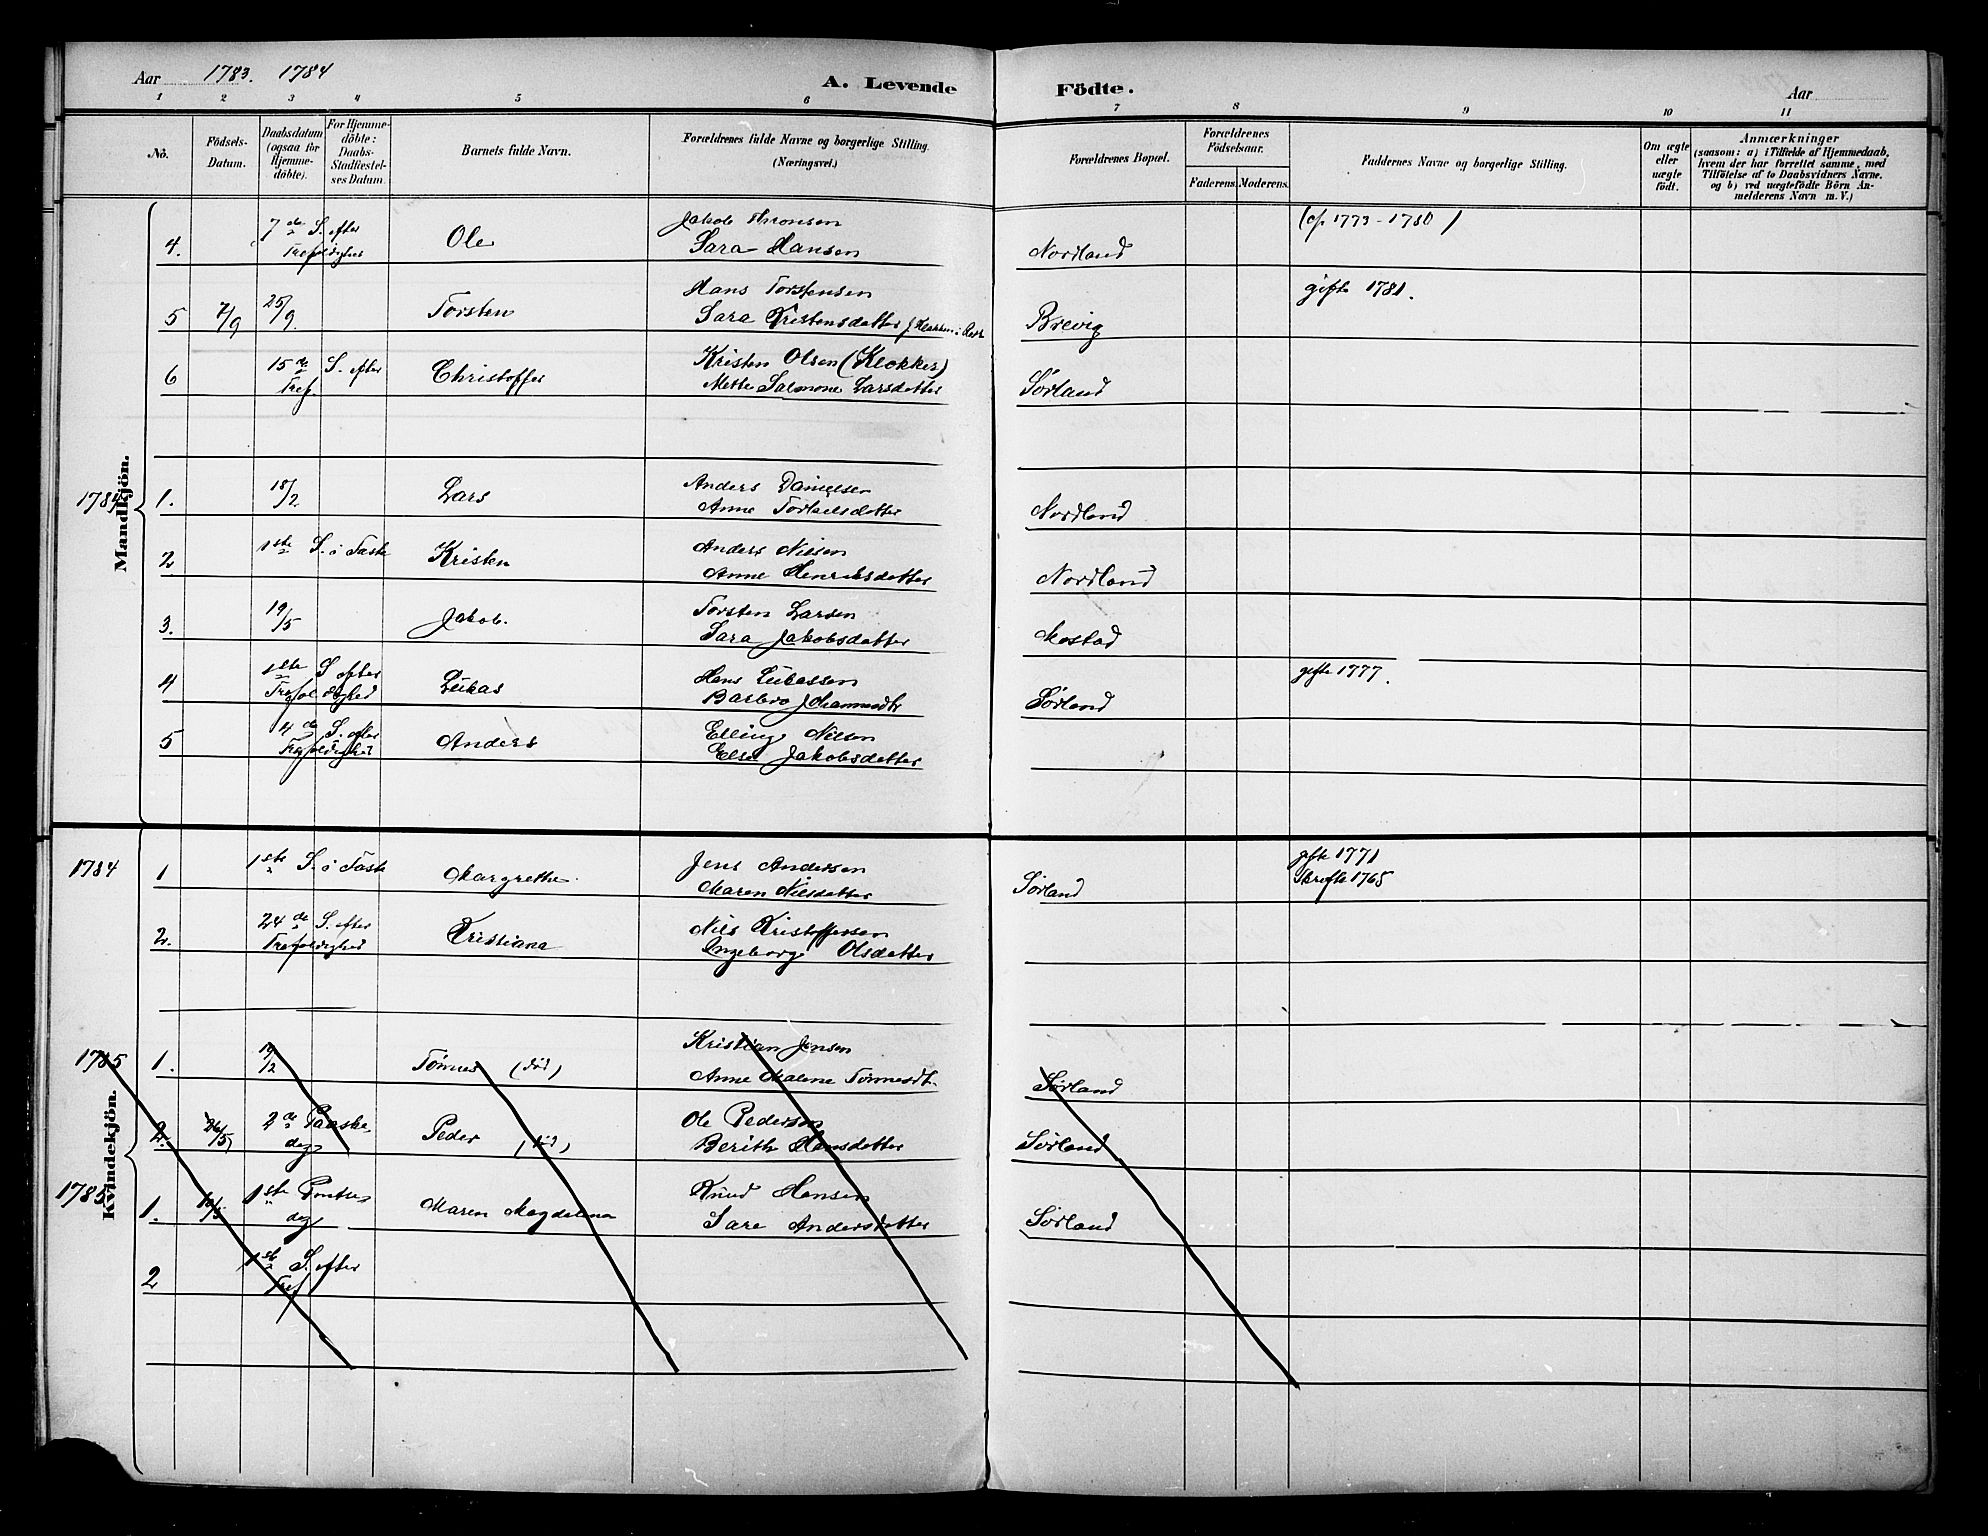 Aar 1783. 1784
A. Levende Födte.
Aar
1 2 3 4 5 6 7 8 9 10 11
No.
Födsels-Datum.
Daabsdatum (ogsaa for Hjemme-döbte).
For Hjemme-döbte: Daabs-Stadfæstel-ses Datum.
Barnets fulde Navn.
Forældrenes fulde Navne og borgerlige Stilling.
(Næringsvei.)
Forældrenes Bopæl.
Forældrenes Födselsaar.
Faderens. Moderens.
Faddernes Navne og borgerlige Stilling.
Om ægte eller uægte födt.
Anmærkninger
(saasom: a) i Tilfælde af Hjemmedaab,
hvem der har forrettet samme, med
Tilföielse af to Daabsvidners Navne.
og b) ved uægtefödte Börn An-
melderens Navn m. V.)
Mandkjön.
4. 7de S. efter Trefoldighed Ole Jakob Thronsen
Sara Hansen Nordland (cf. 1773-1780)
5 7/9 25/9. Torsten Hans Torstensen
Sara Kristensdatter Brevig gift 1781.
6 15de S. efter Tref. Christoffer Kristen Olsen (Klokker)
Mette Salmone Larsdatter Sørland
1784
1. 18/2 Lars Anders Danielsen
Anne Torkelsdatter Nordland
2 1ste S. i Faste Kristen Anders Nilsen
Anne Henriksdatter Nordland
3. 19/5 Jakob. Torsten Larsen
Sara Jakobsdatter Mostad
4 1ste S. efter Trefoldighed Lukas Hans Lukassen
Barbro Johannesdtr Sørland gifte 1777.
5 4de S. efter Trefoldighed Anders Elling Nilsen
Else Jakobsdatter
Kvindekjön.
1784
1 1ste S. i Faste Margrethe Jens Andersen
Maren Nilsdatter Sørland gifte 1771
Skrifte 1765
2. 24de S. efter Trefoldighed Kristiana Nils Kristoffersen
Ingeborg Olsdatter
1785
1. 19/2 Tønnes (død) Kristian Jensen
Anne Malene Tønnesdt. Sørland
2. 26/5 2de Paaske dag Peder (død) Ole Pedersen
Berith Hansdatter Sørland
1785
1. 10/5 1ste Pintse dag Maren Magdalena Knud Hansen
Sara Andersdatter Sørland
2 1ste S. efter Tref